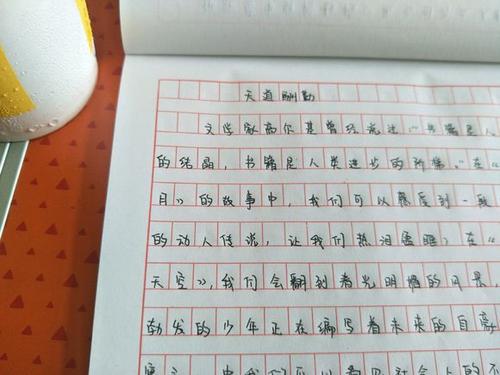 天道酬勤
文学家高尔基曾经说过："书籍是人
的结晶，书籍是人类进步的阶梯。"在《
月》的故事中，我们可以感受到一段
的动人传说，让我们热泪盈眶；在《
天空》，我们会翻到春光明媚的风景，
勃发的少年正在编写着未来的自